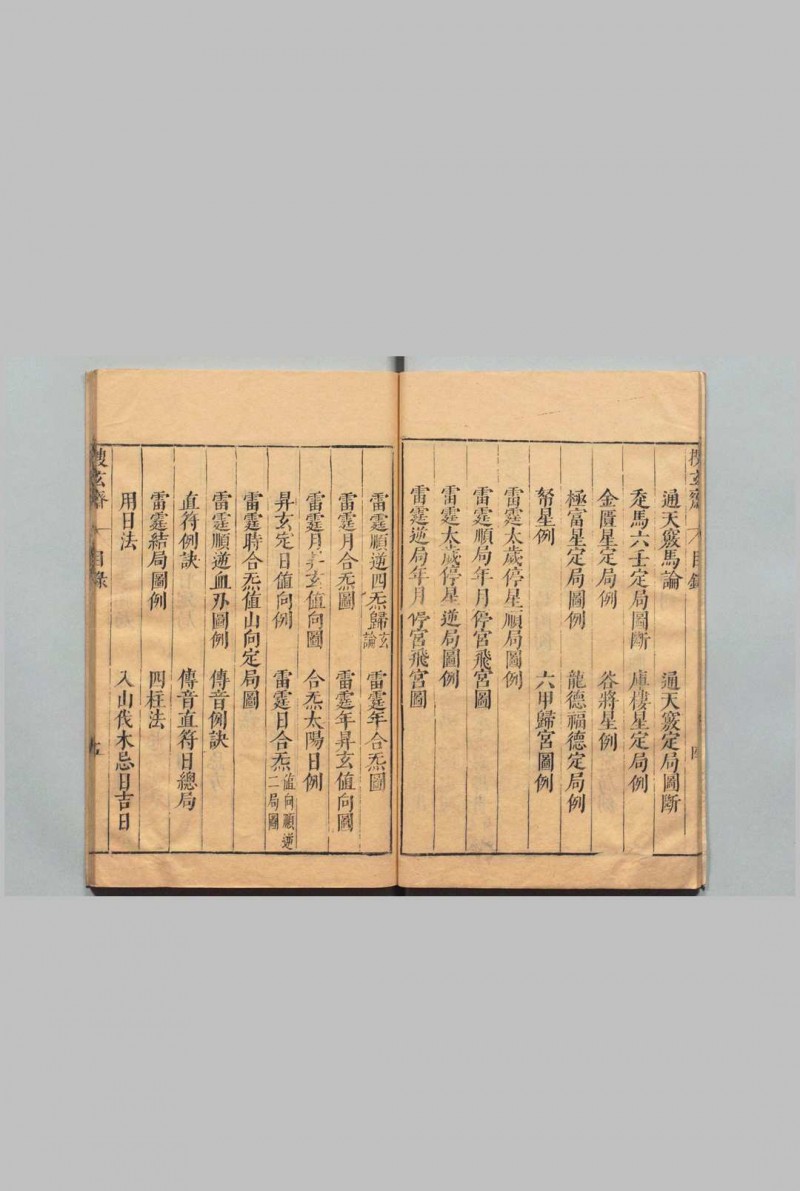 通天竅馬論　通天竅定局圖斷
走馬六壬定局圖斷　庫樓星定局例
金匱星定局例　谷將星例
極富星定局圖例　龍德福德定局例
帑星例　六甲歸宮圖例
雷霆太歲停星順局圖例
雷霆順局年月停宮飛宮圖
雷霆太歲停星逆局圖例
雷霆逆局年月停宮飛宮圖
雷霆順逆四炁歸玄論　雷霆年合炁圖
雷霆月合炁圖　雷霆年昇玄值向圖
雷霆月昇玄值向圖　合炁太陽日例
昇玄定日值向例　雷霆日合炁值向順逆二局圖
雷霆時合炁值山向定局圖
雷霆順逆血刃圖例　傳音例訣
直符例訣　傳音直符日總局
雷霆結局圖例　四柱法
用日法　入山伐木忌日吉日
搜玄 目錄 五